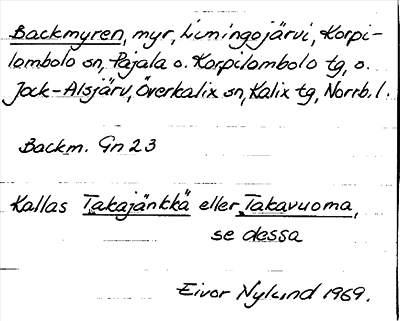 Backmyren, myr, Limingojärvi, Korpi-
lombolo sn, Pajala o. Korpilombolo tg, o.
Jock-Alsjärv, Överkalix sn, Kalix tg, Norrb. l.
Backm. Gn 23
Kallas Takajänkkä eller Takavuoma,
se dessa
Eivor Nylund 1969.